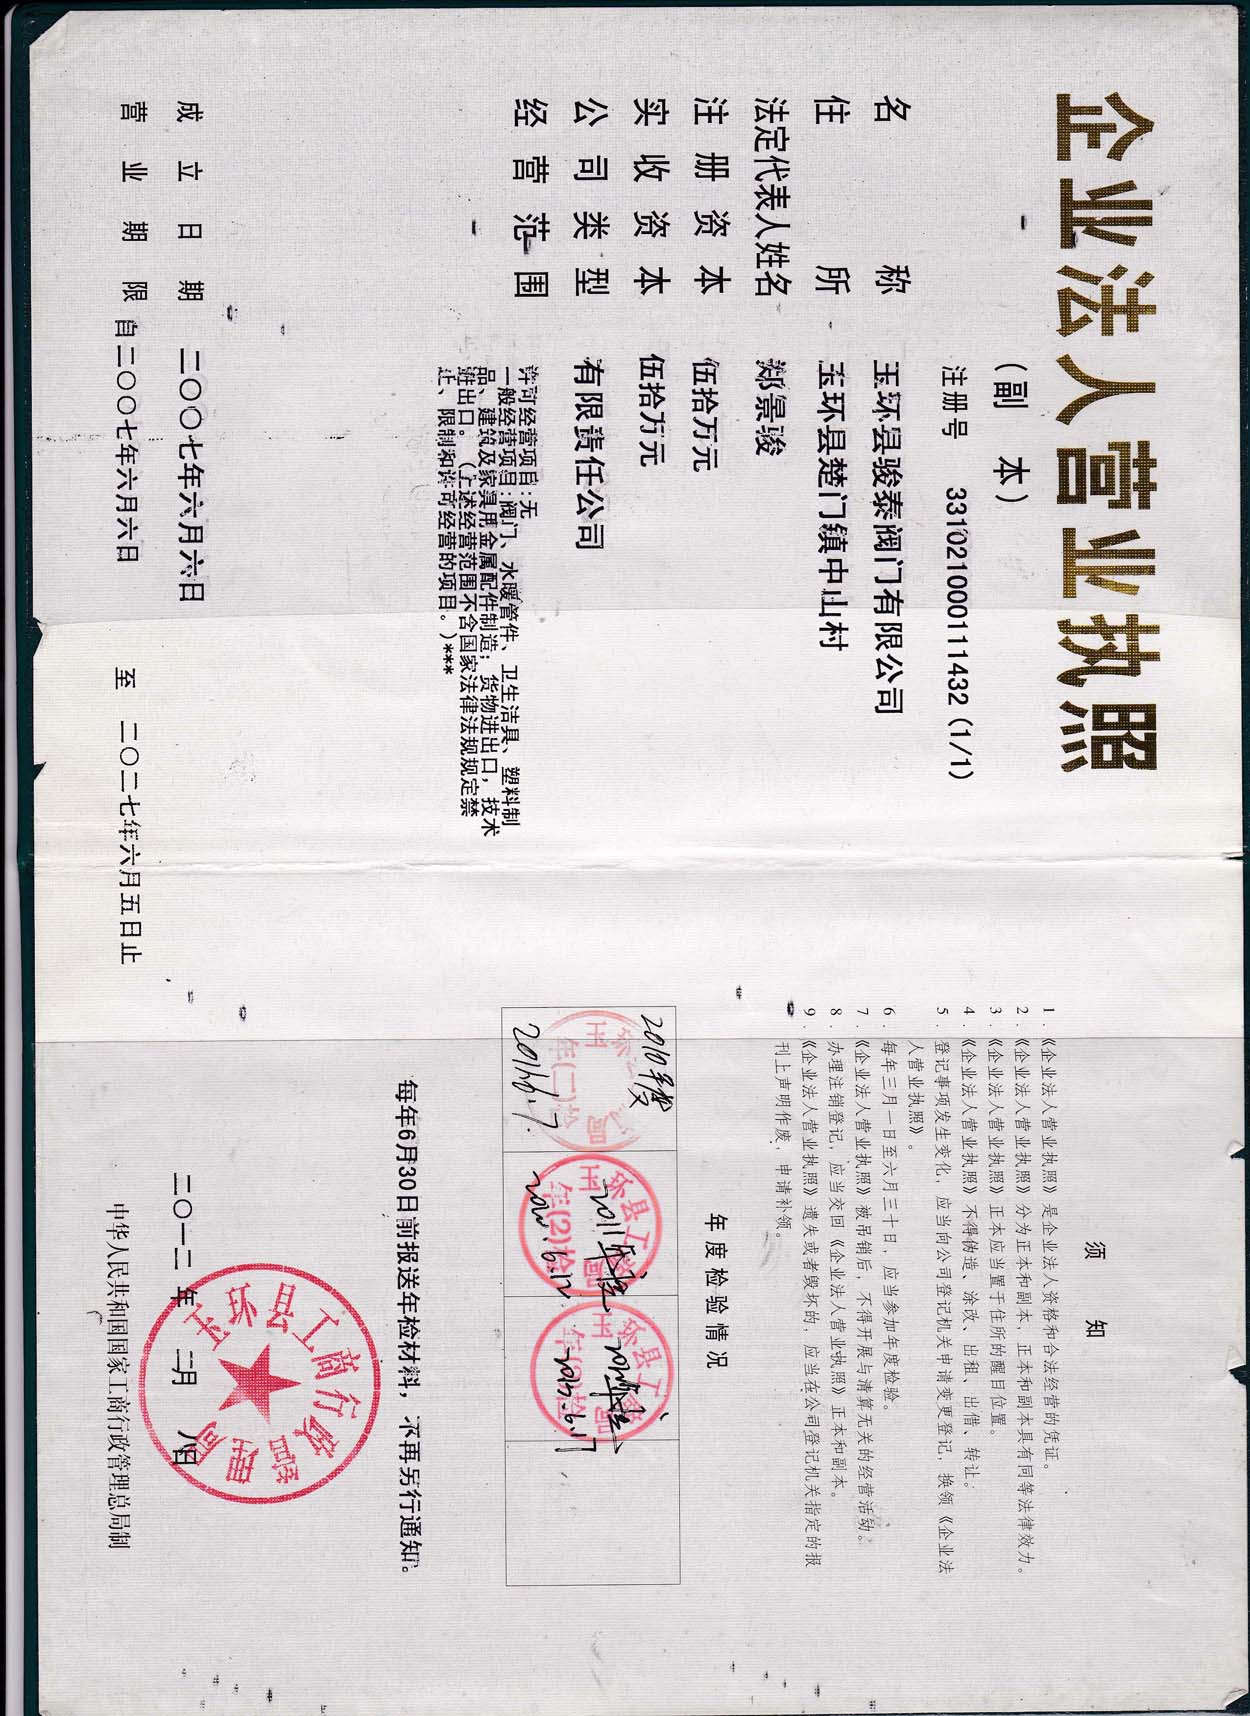 企业法人营业执照
（副 本）
注册号 331021000111432（1/1）
名称 玉环县骏泰阀门有限公司
住所 玉环县楚门镇中山村
法定代表人姓名 郏景骏
注册资本 伍拾万元
实收资本 伍拾万元
公司类型 有限责任公司
经营范围 许可经营项目:无
一般经营项目:阀门、水暖管件、卫生洁具、塑料制
品、建筑及家具用金属配件制造；货物进出口，技术
进出口。（上述经营范围不含国家法律法规规定禁
止、限制和许可经营的项目。）***
成立日期 二〇〇七年六月六日
营业期限 自二〇〇七年六月六日 至 二〇二七年六月五日止
须 知
1．《企业法人营业执照》是企业法人资格和合法经营的凭证。
2．《企业法人营业执照》分为正本和副本，正本和副本具有同等法律效力。
3．《企业法人营业执照》正本应当置于住所的醒目位置。
4．《企业法人营业执照》不得伪造、涂改、出租、出借、转让。
5．登记事项发生变化，应当向公司登记机关申请变更登记，换领《企业法
人营业执照》。
6．每年三月一日至六月三十日，应当参加年度检验。
7．《企业法人营业执照》被吊销后，不得开展与清算无关的经营活动。
8．办理注销登记，应当交回《企业法人营业执照》正本和副本。
9．《企业法人营业执照》遗失或者毁坏的，应当在公司登记机关指定的报
刊上声明作废，申请补领。
年度检验情况
2010年度
2011.6.7.
玉环县工商局
年(2)检
2011年度
2012.6.12
玉环县工商局
2012年度
2013.6.17
每年6月30日前报送年检材料，不再另行通知。
玉环县工商行政管理局
二〇一二年 二月 八日
中华人民共和国国家工商行政管理总局制